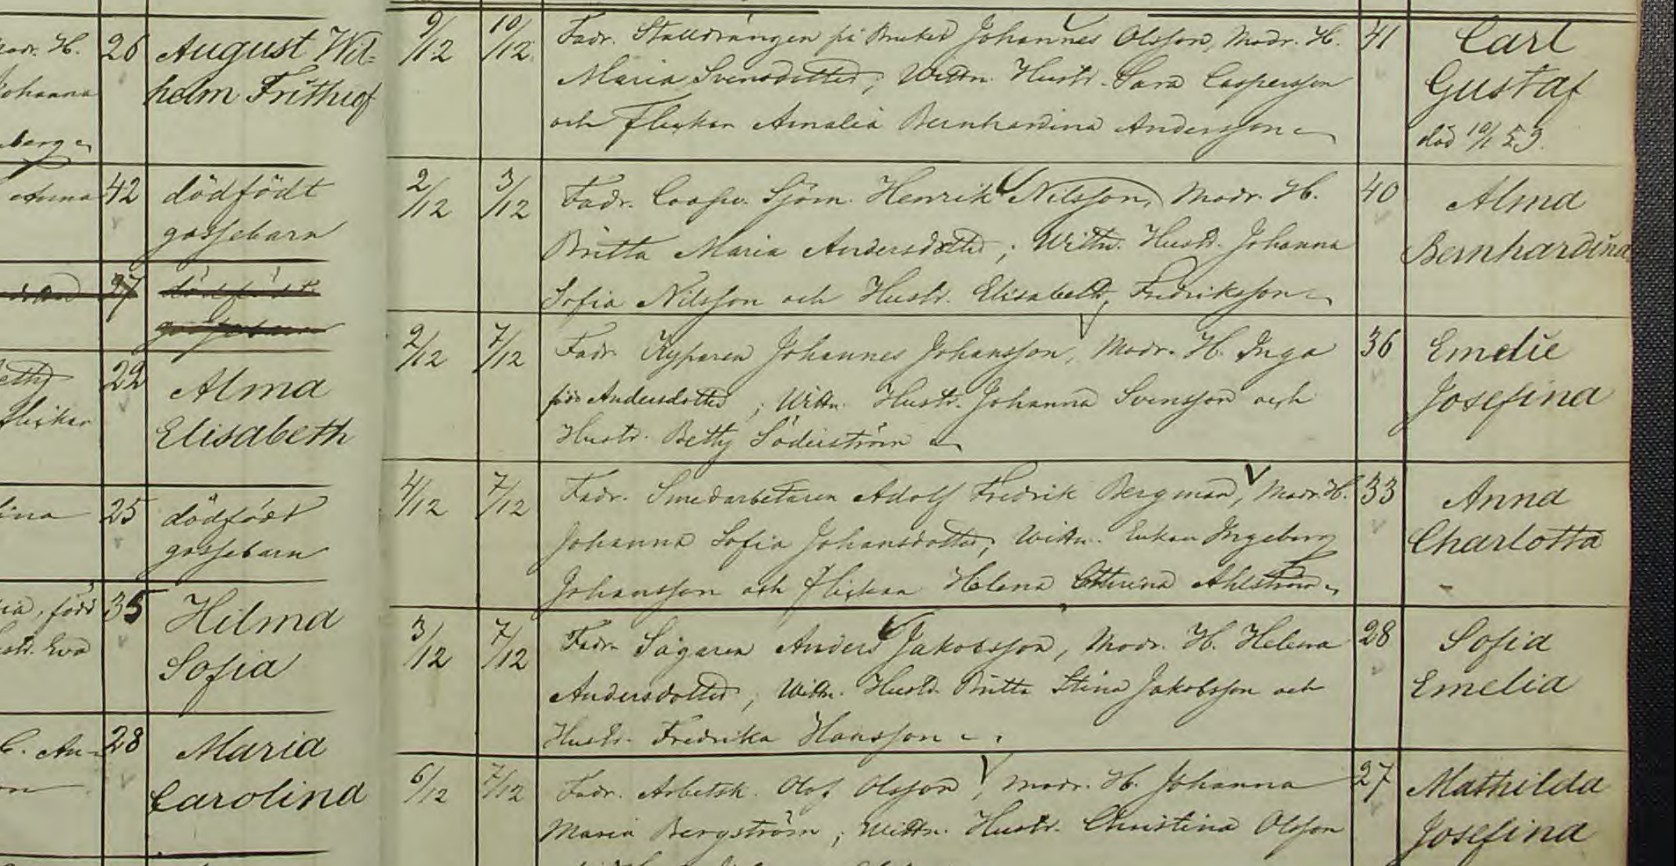 Modr. H. 26 August Wil-
Johanna helm Frithiof
berg
Anna 42 dödfödt
gossebarn
37 dödfödt
gossebarn
22 Alma
flickan Elisabeth
25 dödfödt
gossebarn
född 35 Hilma
Eva Sofia
C. An- 28 Maria
Carolina
9/12 10/12 Fadr. Stalldrängen på Bruket Johannes Olsson, Modr. H. 41 Carl
Maria Svensdotter; Wittn. Hustr. Sara Caspersson Gustaf
och flickan Amalia Bernhardina Andersson död 10/1 53.
2/12 3/12 Fadr. Coopv. Sjöm. Henrik Nilsson, Modr. H. 40 Alma
Britta Maria Andersdotter; Wittn. Hustr. Johanna Bernhardina
Sofia Nilsson och Hustr. Elisabeth Fredriksson
2/12 7/12 Fadr. Kyparen Johannes Johansson, Modr. H. Inga 36 Emelie
Andersdotter; Wittn. Hustr. Johanna Svensson och Josefina
Hustr. Betty Söderström
4/12 7/12 Fadr. Smedarbetaren Adolf Fredrik Bergman, Modr. H. 33 Anna
Johanna Sofia Johansdotter, Wittn. Enkan Ingeborg Charlotta
Johansson och flickan Helena Ahlström
3/12 7/12 Fadr. Sågaren Anders Jakobsson, Modr. H. Helena 28 Sofia
Andersdotter; Wittn. Hustr. Britta Stina Jakobsson och Emelia
Hustr. Fredrika Hansson
6/12 7/12 Fadr. Arbetsk. Olof Olsson, Modr. H. Johanna 27 Mathilda
Maria Bergström; Wittn. Hustr. Christina Olsson Josefina